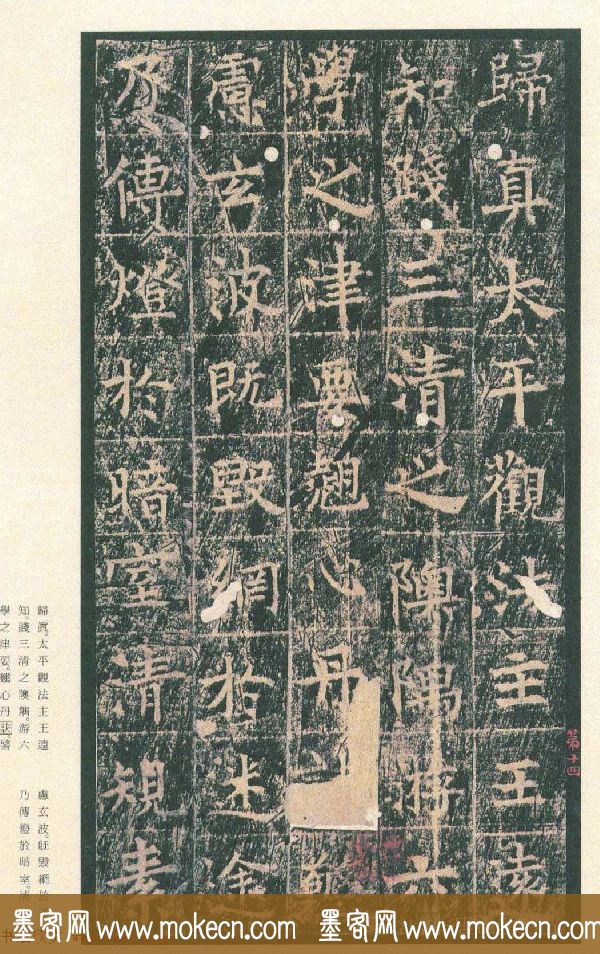 歸真太平觀法主王遠
知踐三清之隩隅游六
學之津要翹心丹
慮玄波既毀網於迷途
乃傳燈於暗室清規素
第十四
歸真。太平觀法主王遠
知踐三清之隩隅。游六
學之津要。翹心丹訣警
慮玄波。旣毀網於
乃傳燈於暗室。清
墨客网 www.mokecn.com 墨客网 www.mokecn.com